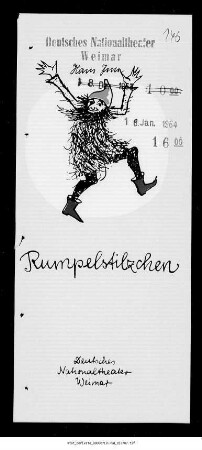 145
Deutsches Nationaltheater
Weimar
1 8 00
1 0 00
1 8. Jan. 1964
1 6 00
Rumpelstilzchen
Deutsches
Nationaltheater
Weimar